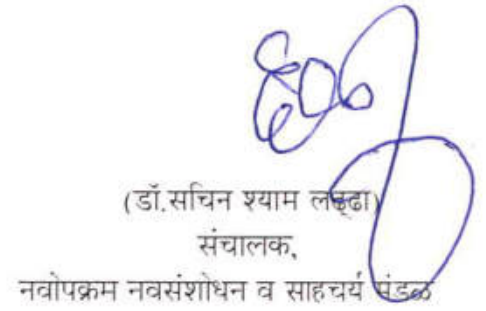 (डॉ.सचिन श्याम लढ्ढा)
संचालक,
नवोपक्रम नवसंशोधन व साहचर्य मंडळ